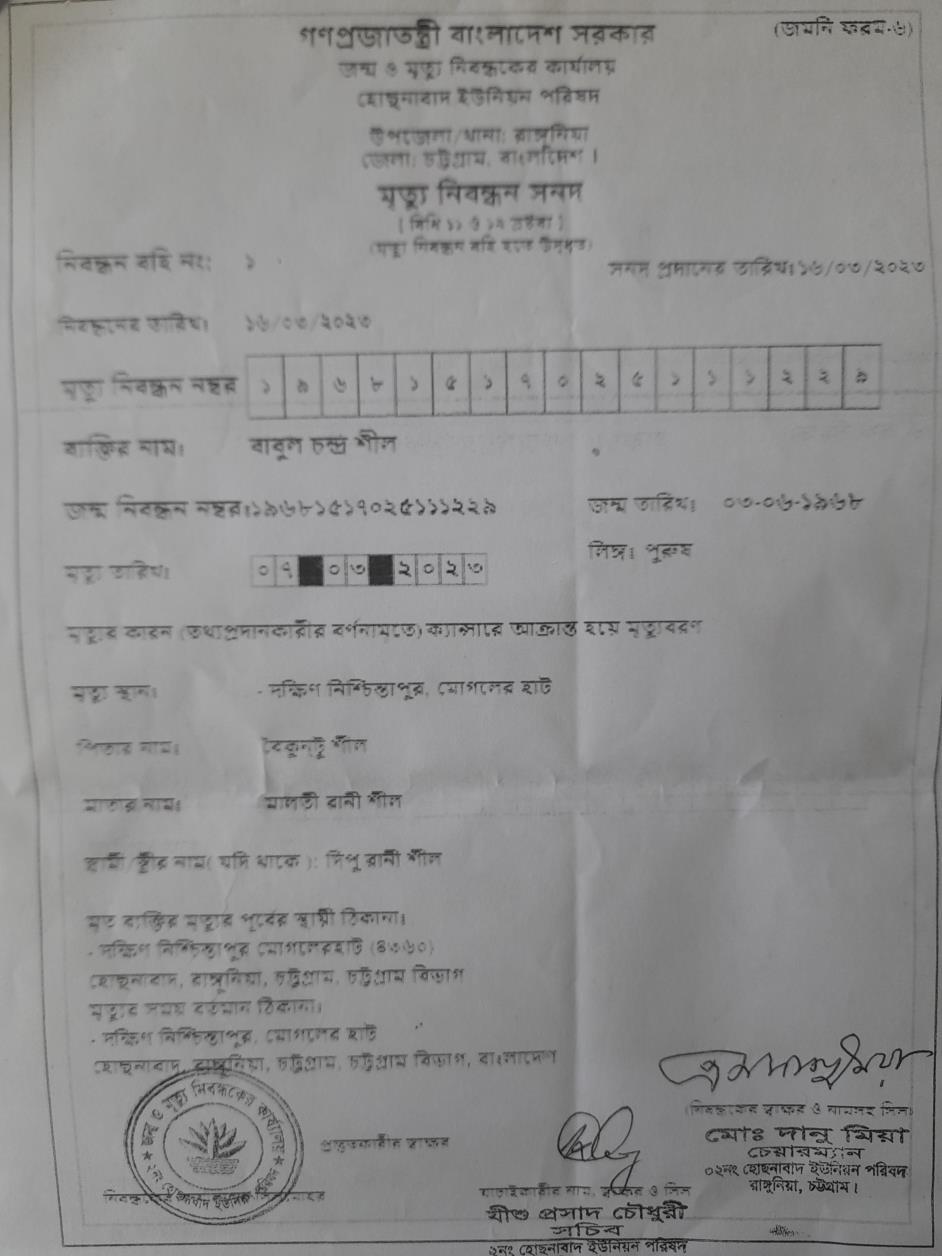 গণপ্রজাতন্ত্রী বাংলাদেশ সরকার
(জমনি ফরম-৬)
জন্ম ও মৃত্যু নিবন্ধকের কার্যালয়
হোছনাবাদ ইউনিয়ন পরিষদ
উপজেলা/থানা: রাঙ্গুনিয়া
জেলা: চট্টগ্রাম, বাংলাদেশ ।
মৃত্যু নিবন্ধন সনদ
(মৃত্যু নিবন্ধন বহি হতে উদ্ধৃত)
নিবন্ধন বহি নং: ১
সনদ প্রদানের তারিখঃ১৬/০৩/২০২৩
নিবন্ধনের তারিখঃ ১৬/০৩/২০২৩
মৃত্যু নিবন্ধন নম্বর ১ ৯ ৬ ৮ ১ ৫ ১ ৭ ০ ২ ৫ ১ ১ ১ ২ ২ ৯
ব্যক্তির নামঃ বাবুল চন্দ্র শীল
জন্ম নিবন্ধন নম্বরঃ১৯৬৮১৫১৭০২৫১১১২২৯ জন্ম তারিখঃ ০৩-০৬-১৯৬৮
মৃত্যু তারিখঃ ০৭ ০৩ ২০২৩ লিঙ্গঃ পুরুষ
মৃত্যুর কারন (তথ্যপ্রদানকারীর বর্ণনামতে) ক্যান্সারে আক্রান্ত হয়ে মৃত্যুবরণ
মৃত্যু স্থানঃ - দক্ষিণ নিশ্চিন্তাপুর, মোগলের হাট
পিতার নামঃ বৈকুন্টু শীল
মাতার নামঃ মালতী রানী শীল
স্বামী/স্ত্রীর নাম( যদি থাকে ): দিপু রানী শীল
মৃত ব্যক্তির মৃত্যুর পূর্বের স্থায়ী ঠিকানাঃ
- দক্ষিণ নিশ্চিন্তাপুর মোগলেরহাট (৪৩৬০)
হোছনাবাদ, রাঙ্গুনিয়া, চট্টগ্রাম, চট্টগ্রাম বিভাগ
মৃত্যুর সময় বর্তমান ঠিকানাঃ
- দক্ষিণ নিশ্চিন্তাপুর, মোগলের হাট
হোছনাবাদ, রাঙ্গুনিয়া, চট্টগ্রাম, চট্টগ্রাম বিভাগ, বাংলাদেশ
জন্ম ও মৃত্যু নিবন্ধকের কার্যালয়
২নং হোছনাবাদ ইউনিয়ন পরিষদ
প্রস্তুতকারীর স্বাক্ষর
(নিবন্ধকের স্বাক্ষর ও নামসহ সিল)
মোঃ দানু মিয়া
চেয়ারম্যান
০২নং হোছনাবাদ ইউনিয়ন পরিষদ
রাঙ্গুনিয়া, চট্টগ্রাম।
যাচাইকারীর নাম, স্বাক্ষর ও সিল
যীশু প্রসাদ চৌধুরী
সচিব
২নং হোছনাবাদ ইউনিয়ন পরিষদ